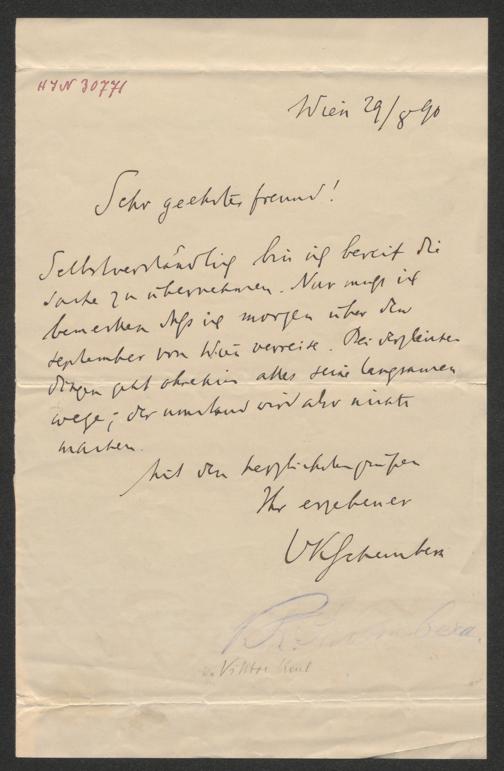 HIN 30771
Wien 29/8 90
Sehr geehrter freund!
Selbstverständlich bin ich bereit die
sache zu übernehmen. Nur muß ich
bemerken daß ich morgen über den
september von Wien verreise. Bei dergleichen
dingen geht ohnehin alles seine langsamen
wege; der umstand wird also nichts
machen.
Mit den herzlichsten grüßen
Ihr ergebener
VKSchembera
Viktor Karl